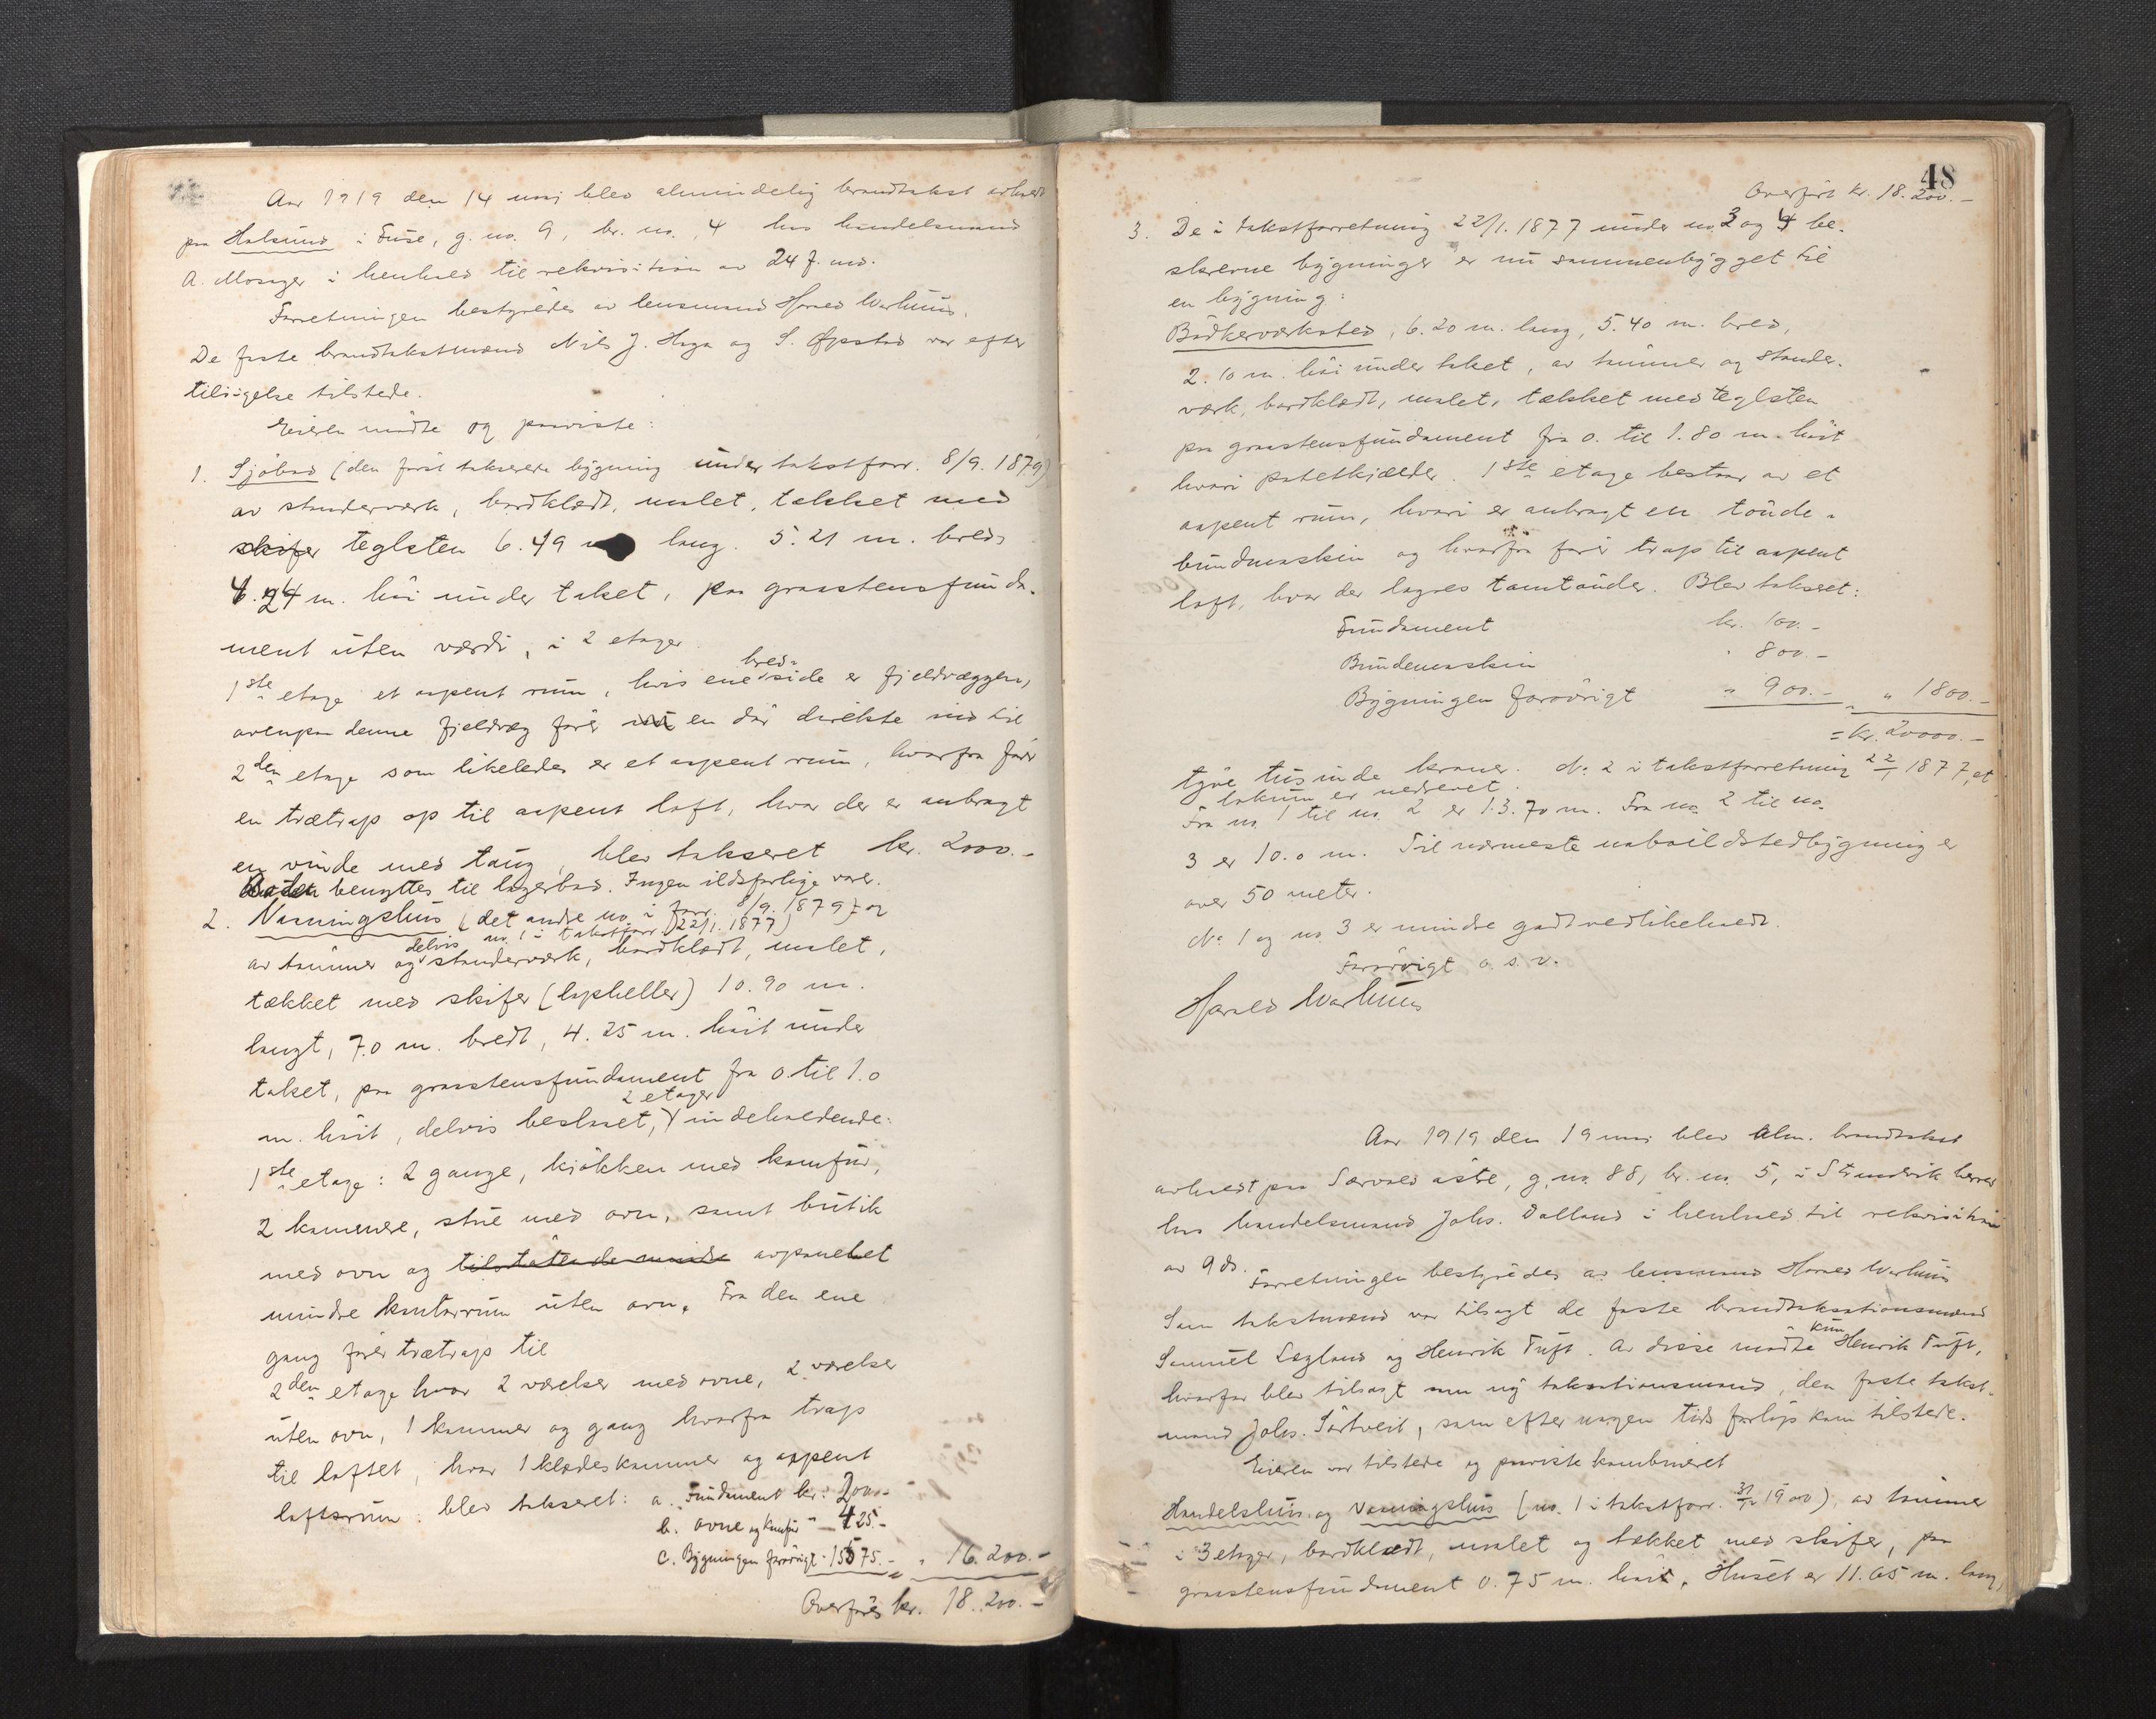 Aar 1919 den 14 mai blev almindelig brandtakst avholdt
paa Holsund i Fuse, g. no. 9, br. no. 4 hos handelsmand
A. Mosager i henhold til rekvisition av 24 f. md.
Forretningen bestyredes av lensmand Harald Warhuus.
De faste brandtakstmænd Nils J. Haga og S. Øpstad var efter
tilsigelse tilstede.
Eieren mødte og paaviste:
1. Sjøbod (den först takserede bygning under takstforr. 8/9. 1879)
av standerverk, bordklædt, malet, tækket med
skifer teglsten 6.49 m lang. 5.21 m. bred,
4.24 m. höi under taket, paa graastensfunda-
ment uten værdi, i 2 etager
1ste etage et aapent rum, hvis ene bred-side er fjeldvæggen,
ovenpaa denne fjeldvæg förer en dör direkte ind til
2den etage som likeledes er et aapent rum, hvorfra förer
en trætrap op til aapent loft, hvor der er anbragt
en vinde med taug, blev takseret kr. 2000.-
Boden benyttes til lagerbod. Ingen ildsfarlige varer.
2. Vaaningshus (det andre no. i forr. 8/9. 1879) og
no. 1 i takstforr. 22/1. 1877)
av tømmer og delvis standerværk, bordklædt, malet,
tækket med skifer (lapheller) 10.90 m.
langt, 7.0 m. bredt, 4.25 m. höit under
taket, paa graastensfundament fra 0 til 1.0
m. höit, delvis beslaaet, 2 etager indeholdende:
1ste etage: 2 gange, kjökken med komfur,
2 kammere, stue med ovn, samt butik
med ovn og tilstötende mindre avpanelet
mindre kontorrum uten ovn. Fra den ene
gang förer trætrap til
2den etage hvor 2 værelser med ovne, 2 værelser
uten ovn, 1 kammer og gang hvorfra trap
til loftet, hvor 1 klædeskammer og aapent
loftsrum. blev takseret: a. Fundament kr. 200.-
b. ovne og komfur " 425.-
c. Bygningen forövrigt " 15575.- " 16.200.-
Overföres kr. 18.200.-
48
Overfört kr. 18.200.-
3. De i takstforretning 22/1. 1877 under no. 3 og 4 be-
skrevne bygninger er nu sammenbygget til
en bygning:
Bödkerværksted, 6.20 m. lang, 5.40 m. bred,
2.10 m. höi under taket, av tømmer og stander-
værk, bordklædt, malet, tækket med teglsten
paa graastensfundament fra 0. til 1.80 m. höit
hvori potetkjælder. 1ste etage bestaar av et
aapent rum, hvori er anbragt en tönde-
bundmaskin og hvorfra förer trap til aapent
loft, hvor der lagres tomtönder. Blev takseret:
Fundament kr. 100.-
Bundemaskin " 800.-
Bygningen forövrigt " 900.- " 1800.-
= kr. 20000.-
tyve tusinde kroner. No. 2 i takstforretning 22/1 1877, et
lokum er nedrevet.
Fra no. 1 til no. 2 er 13.70 m. Fra no. 2 til no.
3 er 10.0 m. Til nærmeste naboildstedbygning er
over 50 meter.
No. 1 og no. 3 er mindre godt vedlikeholdt.
Forövrigt o. s. v.
Harald Warhuus
Aar 1919 den 19 mai blev alm. brandtakst
avholdt paa Særvold østre, g. no. 88, br. no. 5, i Strandvik herred
hos handelsmand Johs. Dalland i henhold til rekvisition
av 9 ds.
Forretningen bestyredes av lensmand Harald Warhuus
Som takstmænd var tilsagt de faste brandtakstationsmænd
Samuel Lygland og Henrik Tuft. Av disse mødte kun Henrik Tuft,
hvorfor blev tilsagt en ny takstationsmand, den faste takst-
mand Johs. Sörtveit, som efter nogen tids forløp kom tilstede.
Eieren var tilstede og paaviste kombineret
Handelshus og vaaningshus (no. 1 i takstforr. 1900), av tømmer
i 3 etager, bordklædt, malet og tækket med skifer, paa
graastensfundament 0.75 m. höit. Huset er 11.65 m. lang,